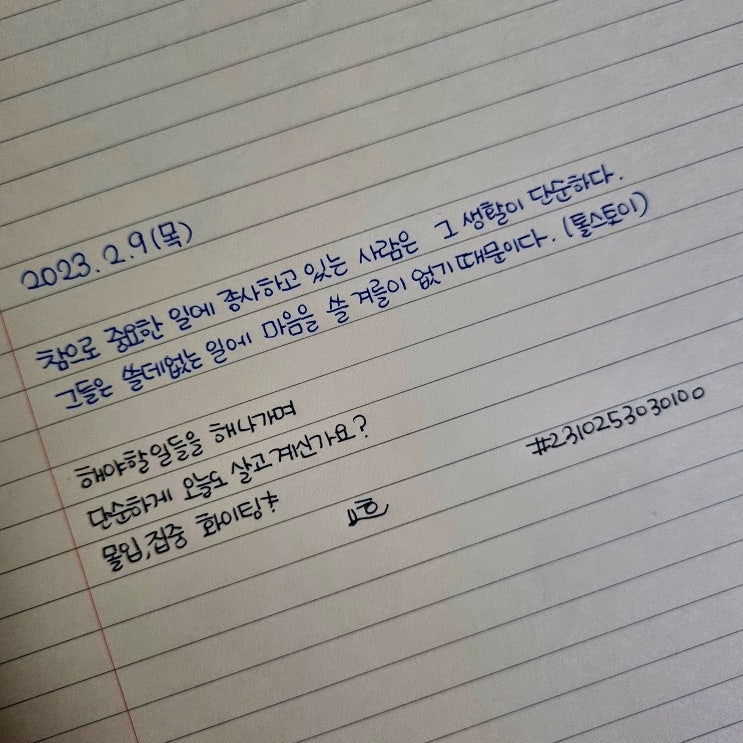 2023. 2. 9 (목)
참으로 중요한 일에 종사하고 있는 사람은 그 생활이 단순하다.
그들은 쓸데없는 일에 마음을 쓸 겨를이 없기 때문이다. (톨스토이)
해야할일들을 해나가며
단순하게 오늘도 살고계신가요?
#2310253030100
몰입, 집중 화이팅!